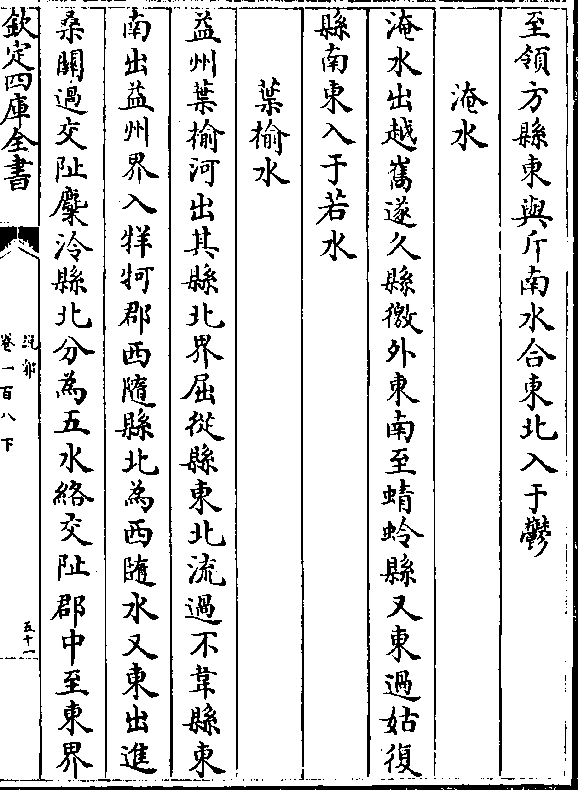 至領方縣東與斤南水合東北入于鬱
淹水
淹水出越嶲遂久縣徼外東南至蜻蛉縣又東過姑復
縣南東入于若水
葉榆水
益州葉榆河出其縣北界屈從縣東北流過不韋縣東
南出益州界入牂牁郡西隨縣北為西隨水又東出進
桑關過交阯麊泠縣北分為五水絡交阯郡中至東界
欽定四庫全書
說郛
卷一百八下
五十一